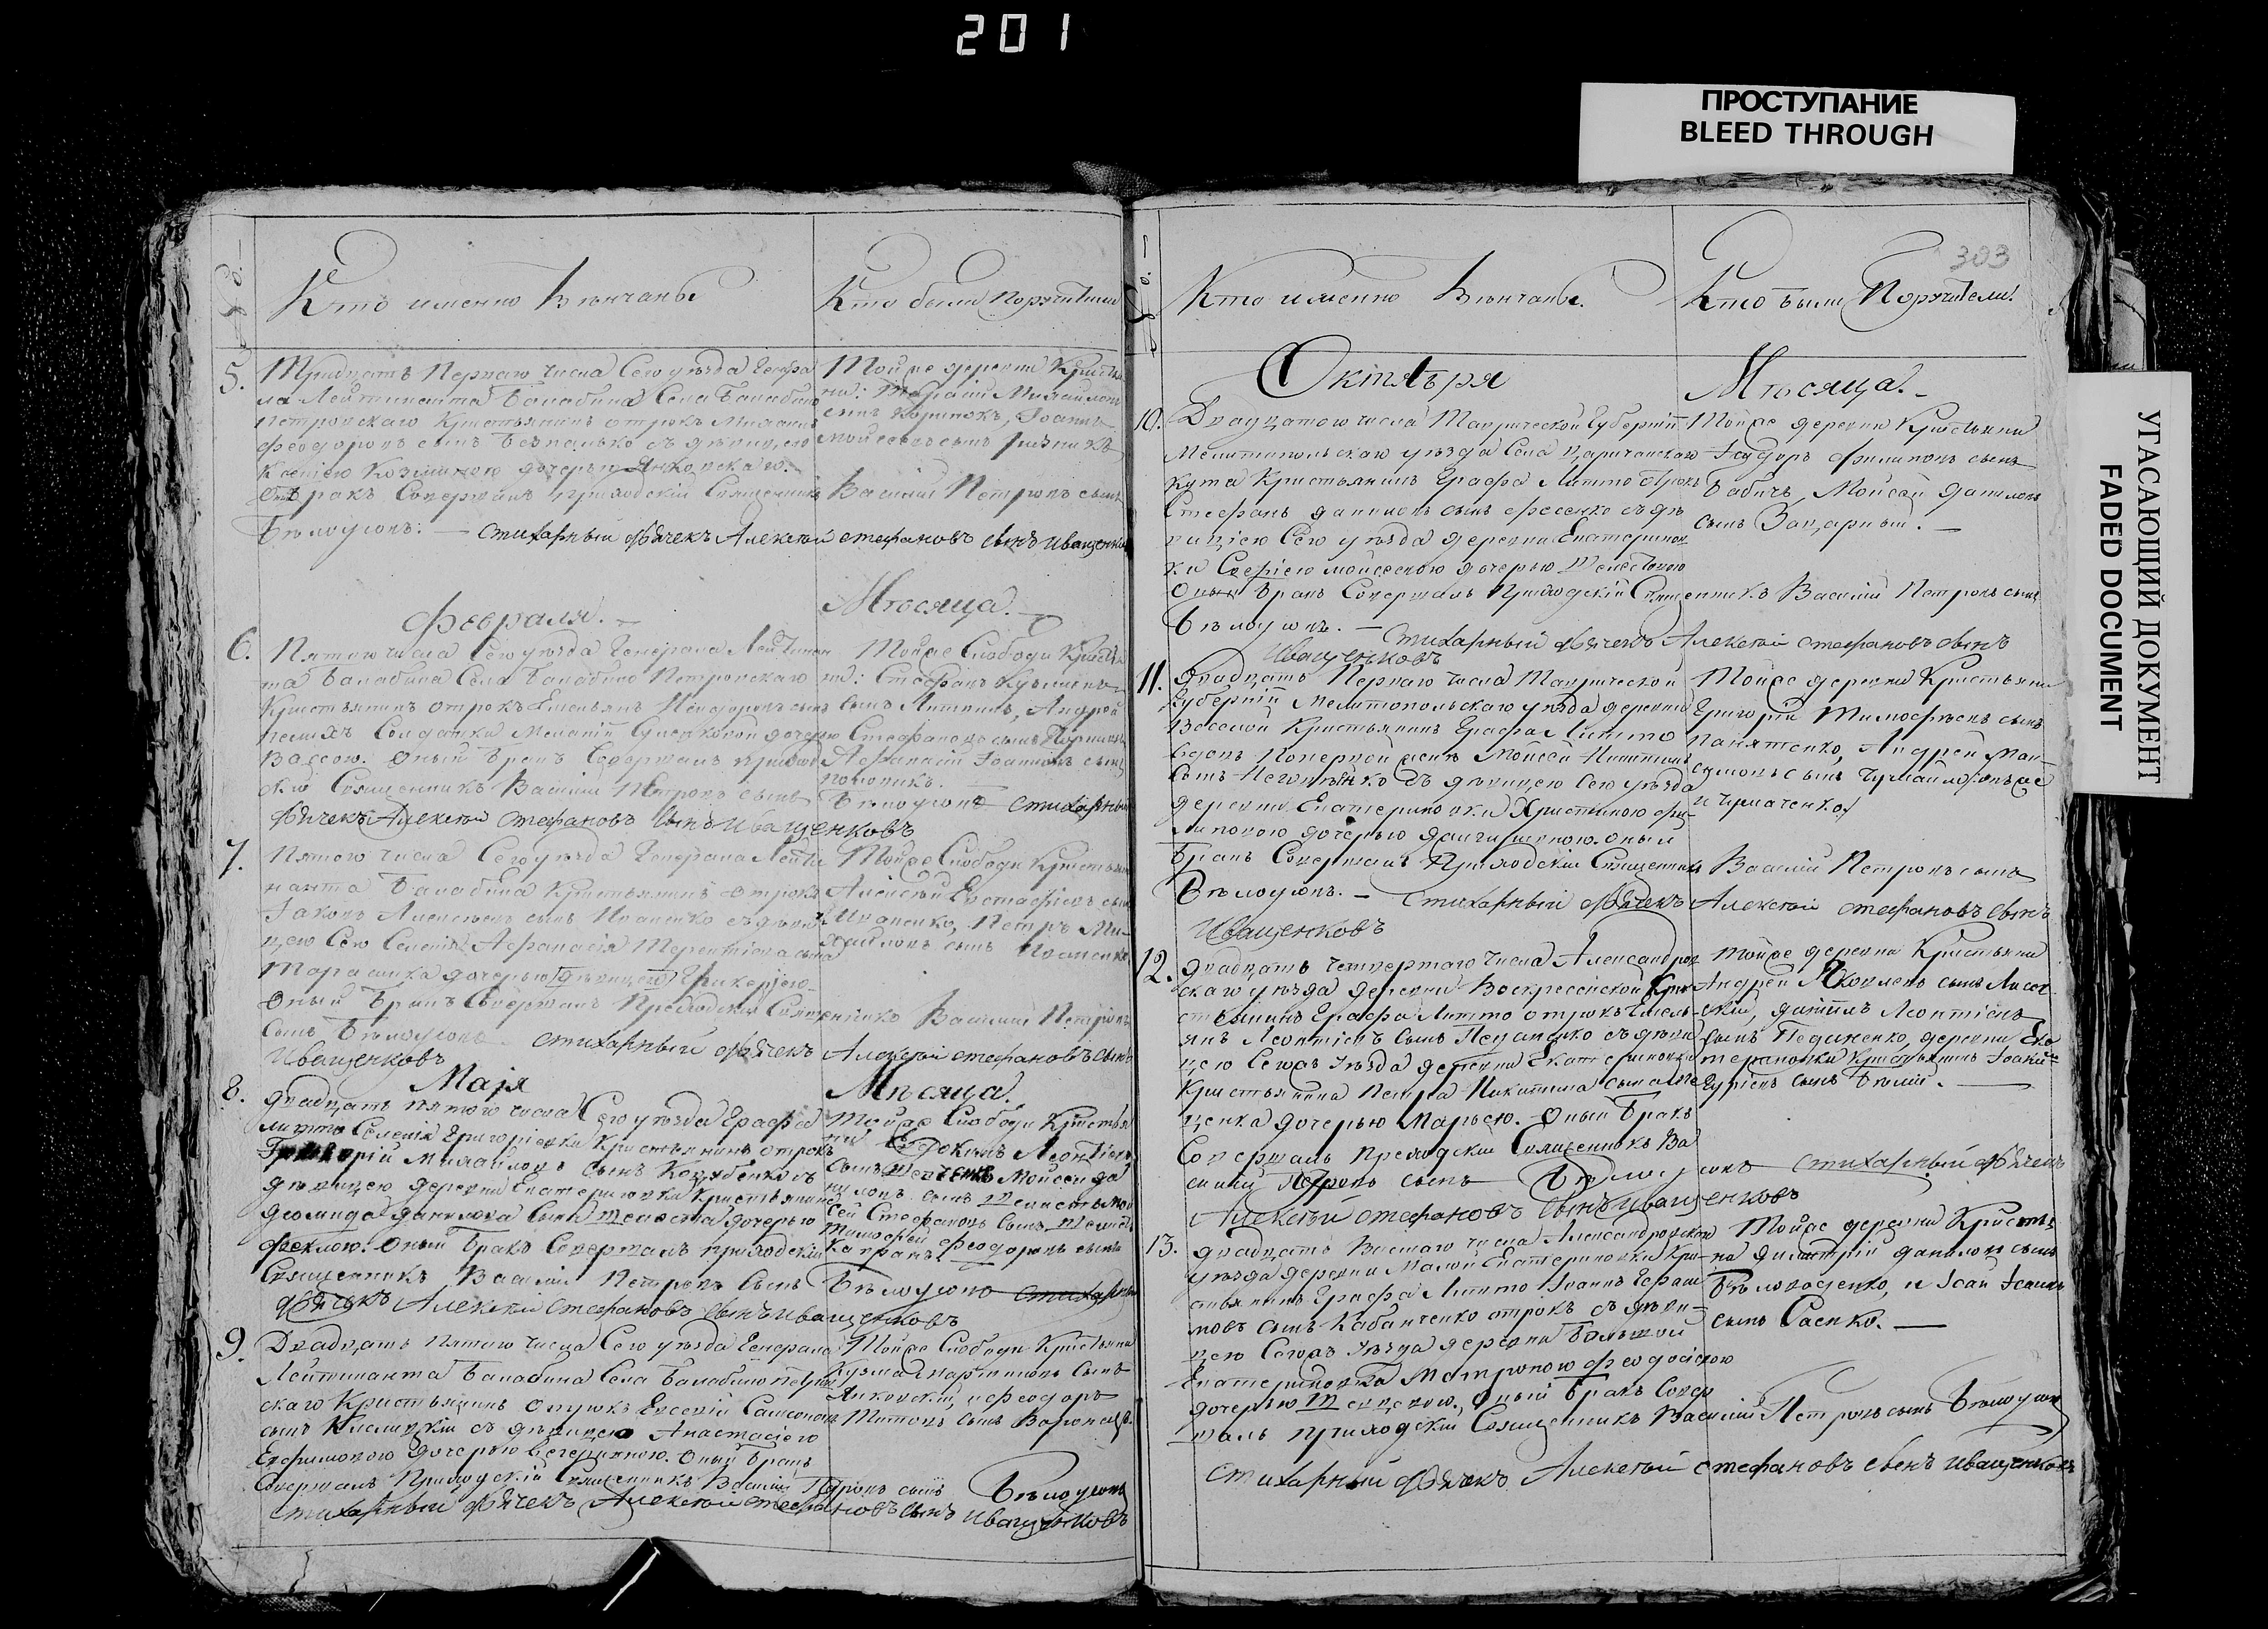 201
ПРОСТУПАНИЕ
BLEED THROUGH
УГАСАЮЩИЙ ДОКУМЕНТ
FADED DOCUMENT
303
Кто именно Вѣнчаны
Кто были Поручители
5.
Тридцать Перваго числа Сего уѣзда Генера
ла Лейтинанта Балабина Села Балабино
петровскаго Кристьянинъ отрокъ
феодоровъ сынъ Безпалько съ дѣвицею
Ксениею Козминою дочерью Янковскаго.
бракъ Совершалъ приходскій Священникъ
Бѣлоусовъ: — стихарный дьячекъ Алексѣй стефановъ сынъ иващенковъ
Тойже деревни Кристья
ни: Тарасій Михайловъ
сынъ Коринокъ, Іоаннъ
мойсеевъ сынъ резникъ
Василій Петровъ сынъ
Февраля. Мѣсяца.
6.
Пятого числа Сего уѣзда Генерала Лейтинан
та Балабина Села Балабино Петровскаго
Кристьянинъ отрокъ Емельянъ сынъ
Солдатки дочерю
Вассою. Оный бракъ Совершалъ приход
скій Священникъ Василій Петровъ сынъ
дьячекъ Алексѣй стефановъ сынъ иващенковъ
Тойже Слободы Кристья
ни: Стефанъ
сынъ Литвинъ, Андрей
Стефановъ сынъ
Афанасій Іоанновъ сынъ
Бѣлоусовъ стихарный
7.
Пятого числа Сего уѣзда Генерала Лейти
нанта Балабина Кристьянинъ отрокъ
Іаковъ Алексѣевъ сынъ Иваненко съ дѣви
цею Сего Селенія Афанасія Терентіева сына
Тарасика дочерью Гликеріею
Оный Бракъ Совершалъ Приходскій Священникъ Василій Петровъ
сынъ Бѣлоусовъ стихарный дьячекъ Алексѣй стефановъ сынъ
Иващенковъ
Тойже Слободы Кристьяни
Алексѣй Евстафіевъ сынъ
Иваненко, Петръ Ми
хайловъ сынъ Иваненко
Маія Мѣсяца.
8.
Двадцать пятого числа Сего уѣзда Графа
Литто Селенія Григоріевки Кристьянинъ отрокъ
Григорій Михайловъ сынъ Коцюбенко съ
дѣвицею деревни Екатериновки Кристьянина
Діомида Данилова сына Шелеста дочерью
феклою. Оный Бракъ Совершалъ приходскій
Священникъ Василій Петровъ Сынъ Бѣлоусовъ стихарный
дьячекъ Алексѣй стефановъ сынъ иващенковъ
Тойже Слободы Кристья
ни Евдокимъ Леонтіевъ
сынъ Мойсей Да
ниловъ сынъ Шелестъ мой
сей Стефановъ сынъ Шелестъ
Тимофей Феодоровъ сынъ
9.
Двадцать пятого числа Сего уѣзда Генерала
Лейтинанта Балабина Села Балабино петров
скаго Кристьянинъ отрокъ Евсевій Самсоновъ
сынъ Кислицкій съ дѣвицею Анастасіею
Ефимовою дочерью вечериною. Оный бракъ
Совершалъ Приходскій Священникъ Василій Петровъ сынъ Бѣлоусовъ
стихарный дьячекъ Алексѣй стефановъ сынъ иващенковъ
Тойже Слободы Кристьяни
Кузма мартиновъ сынъ
Янковскій, и Феодоръ
Титовъ сынъ Воронецъ.
Кто именно Вѣнчаны.
Кто были Поручители.
Октября Мѣсяца.
10.
Двадцатого числа Таврической Губерніи
Мелитопольскаго уѣзда Села Царичанскаго
кута Кристьянинъ Графа Литто Отрокъ
Стефанъ данииловъ сынъ фесенко съ дѣ
вицею Сего уѣзда деревни Екатеринов
ки Софіею мойсеевою дочерью Шелестовою
Оный Бракъ Совершалъ Приходскій Священникъ Василій Петровъ сынъ
Бѣлоусовъ. — стихарный дьячекъ Алексѣй стефановъ сынъ
Иващенковъ
Тойже деревни Кристьяни
Ісидоръ Филиповъ сынъ
Бабичъ, Мойсей даниловъ
сынъ Захарный. —
11.
Двадцать Перваго числа Таврической
Губерніи Мелитопольскаго уѣзда деревни
Веселой Кристьянинъ Графа Литто
вдовъ Мойсей Никитинъ
сынъ съ дѣвицею Сего уѣзда
деревни Екатериновки Христиною фи
липовою дочерью Оный
бракъ Совершалъ Приходскій Священникъ Василій Петровъ сынъ
Бѣлоусовъ. — Стихарный дьячекъ Алексѣй стефановъ сынъ
Иващенковъ
Тойже деревни Кристьяни
Григорій Тимофѣевъ сынъ
Андрей Ма
ксимовъ сынъ
и чумаченко
12.
Двадцать четвертаго числа Александров
скаго уѣзда деревни Воскресенской Кри
стьянинъ Графа Литто отрокъ Емель
янъ Леонтіевъ сынъ Педаненко съ дѣви
цею Сегожъ Уѣзда деревни Екатериновки
Кристьянина Петра Никитина сына
ценка дочерью Марьею. Оный бракъ
Совершалъ приходскій Священникъ Ва
силій Петровъ сынъ Бѣлоусовъ стихарный дьячекъ
Алексѣй стефановъ сынъ иващенковъ
Тойже деревни Кристьяни
Андрей Яковлевъ сынъ Лисов
скій, даніилъ Леонтіевъ
сынъ Педаненко, деревни Ека
териновки Кристьянинъ Іоакимъ
Гуріевъ сынъ Бѣлый. —
13.
Двадцать Восмаго числа Александровскаго
уѣзда деревни Малой Екатериновки Кри
стьянинъ Графа Литто Іоаннъ
мовъ сынъ Кабанченко отрокъ съ дѣви
цею Сегожъ Уѣзда деревни Большой
Екатериновки Матроною феодосіевою
дочерью Оный бракъ Совер
шалъ приходскій Священникъ Василій Петровъ сынъ Бѣлоусовъ
стихарный дьячекъ Алексѣй стефановъ сынъ иващенковъ
Тойже деревни Кристья
не димитрій даниловъ сынъ
и Ісай Іоанновъ
сынъ Саенко. —